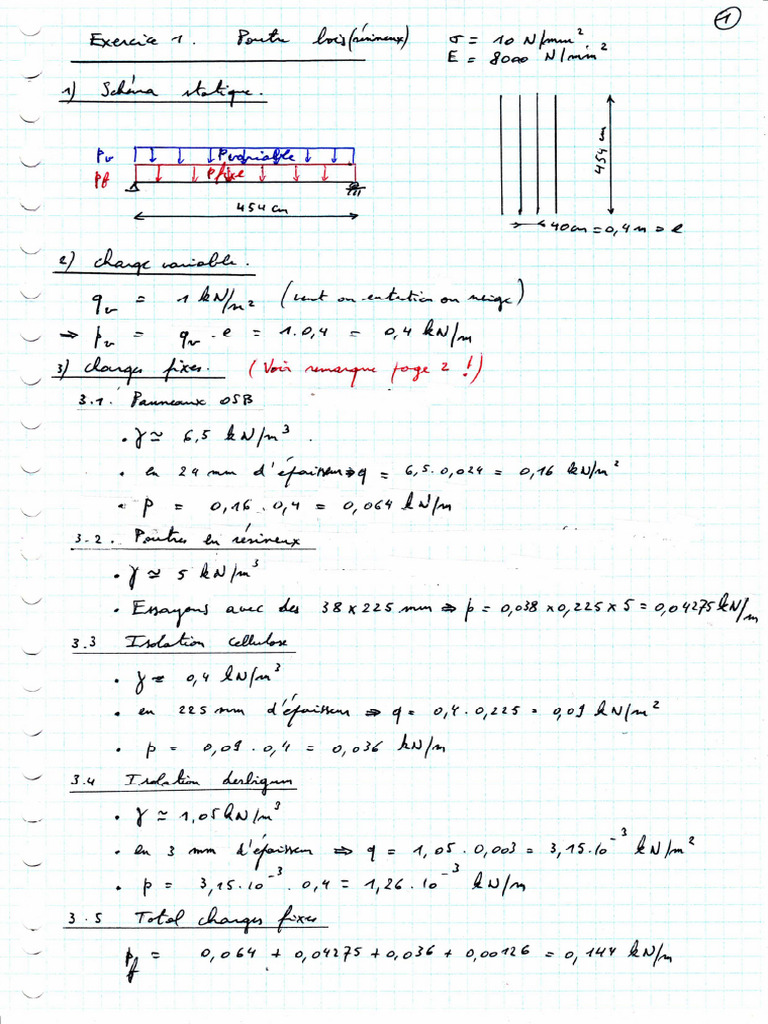 1
Exercice 1. Poutre bois (résineux) σ = 10 N/mm²
E = 8000 N/mm²
1) Schéma statique.
Pv Pvariable
Pf Pfixe
454 cm
454 cm
40cm = 0,4 m = e
2) Charge variable.
qv = 1 kN/m² (vent ou entretien ou neige)
⇒ pv = qv . e = 1.0,4 = 0,4 kN/m
3) Charges fixes. (Voir remarque page 2 !)
3.1. Panneaux OSB
• γ ≃ 6,5 kN/m³.
• en 24 mm d'épaisseur ⇒ q = 6,5.0,024 = 0,16 kN/m²
• p = 0,16.0,4 = 0,064 kN/m
3.2. Poutres en résineux
• γ ≃ 5 kN/m³
• Essayons avec des 38 x 225 mm ⇒ p = 0,038 x 0,225 x 5 = 0,04275 kN/m
3.3 Isolation cellulose
• γ ≃ 0,4 kN/m³
• en 225 mm d'épaisseur ⇒ q = 0,4.0,225 = 0,09 kN/m²
• p = 0,09.0,4 = 0,036 kN/m
3.4 Isolation derbigum
• γ ≃ 1,05 kN/m³
• en 3 mm d'épaisseur ⇒ q = 1,05.0,003 = 3,15.10⁻³ kN/m²
• p = 3,15.10⁻³.0,4 = 1,26.10⁻³ kN/m
3.5 Total charges fixes
pf = 0,064 + 0,04275 + 0,036 + 0,00126 = 0,144 kN/m